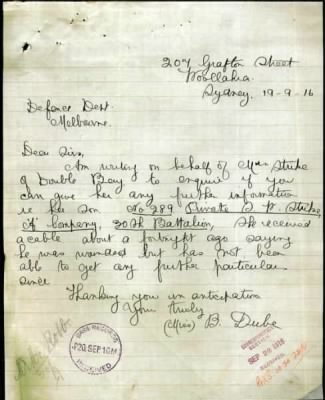 207 Grafton Street
Woollahra
Sydney, 19-9-16
Defence Dept.
Melbourne.
Dear Sirs,
Am writing on behalf of Mrs Stuke
of Double Bay to enquire if you
can give her any further information
re her son No 289 Private S. W. Stuke
"A" Company, 30th Battalion, she received
a cable about a fortnight ago saying
he was wounded but has not been
able to get any further particulars
since
Thanking you in anticipation
Yours truly
(Mrs) B. Dube
BASE RECORDS
20 SEP 1916
RECEIVED
SEP 20 1916